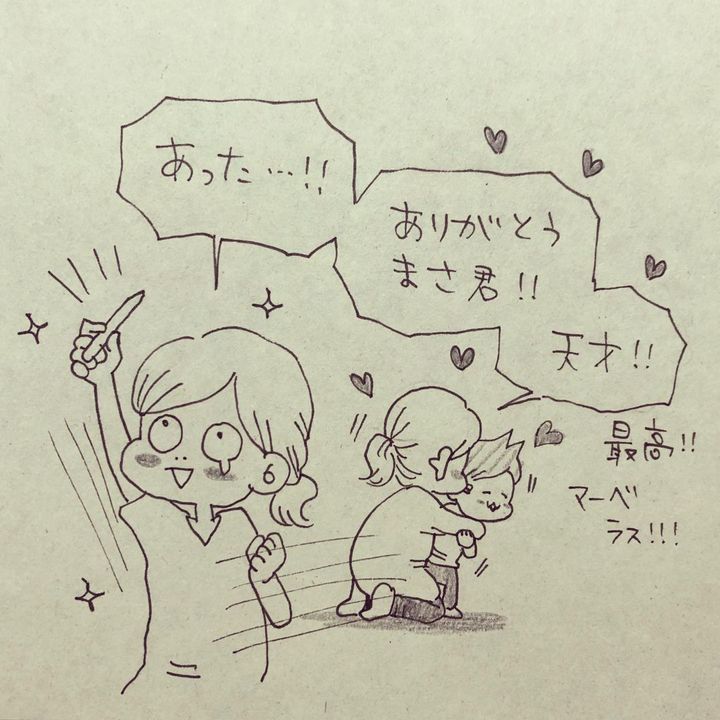 あった…!!
ありがとう
まさ君!!
天才!!
最高!!
マーベ
ラス!!!